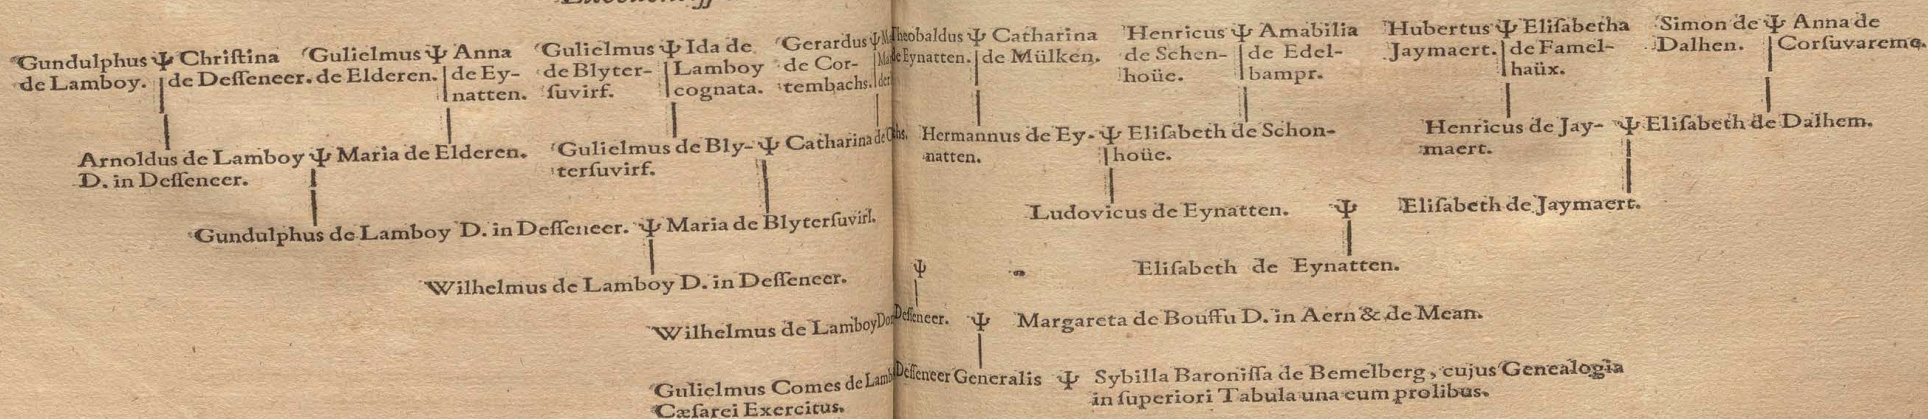 Gundulphus Ψ Chriſtina
de Lamboy. de Deſſeneer.
Gulielmus Ψ Anna
de Elderen. de Ey-
natten.
Gulielmus Ψ Ida de
de Blyter- Lamboy
ſuvirſ. cognata.
Gerardus Ψ
de Cor-
tembachs.
Theobaldus Ψ Catharina
de Eynatten. de Mülken.
Henricus Ψ Amabilia
de Schen- de Edel-
hoüe. bampr.
Hubertus Ψ Eliſabetha
Jaymaert. de Famel-
haüx.
Simon de Ψ Anna de
Dalhen. Corſuvareme.
Arnoldus de Lamboy Ψ Maria de Elderen.
D. in Deſſeneer.
Gulielmus de Bly- Ψ Catharina de
terſuvirſ.
Hermannus de Ey- Ψ Eliſabeth de Schon-
natten. hoüe.
Henricus de Jay- Ψ Eliſabeth de Dalhem.
maert.
Gundulphus de Lamboy D. in Deſſeneer. Ψ Maria de Blyterſuvirſ.
Ludovicus de Eynatten. Ψ Eliſabeth de Jaymaert.
Wilhelmus de Lamboy D. in Deſſeneer. Ψ Eliſabeth de Eynatten.
Wilhelmus de Lamboy Deſſeneer. Ψ Margareta de Bouſſu D. in Aern & de Mean.
Gulielmus Comes de Deſſeneer Generalis Ψ Sybilla Baroniſſa de Bemelberg, cujus Genealogia
Cæſarei Exercitus. in ſuperiori Tabula una cum prolibus.